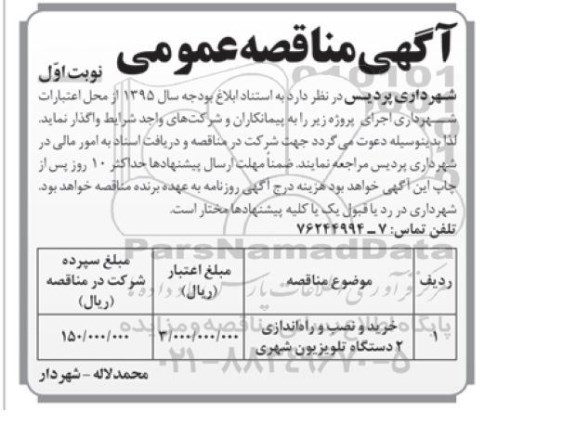 آگهی مناقصه عمومی
نوبت اوّل
شهرداری پردیس در نظر دارد به استناد ابلاغ بودجه سال ۱۳۹۵ از محل اعتبارات
شهرداری اجرای پروژه زیر را به پیمانکاران و شرکت‌های واجد شرایط واگذار نماید.
لذا بدینوسیله دعوت می‌گردد جهت شرکت در مناقصه و دریافت اسناد به امور مالی در
شهرداری پردیس مراجعه نمایند. ضمناً مهلت ارسال پیشنهادها حداکثر ۱۰ روز پس از
چاپ این آگهی خواهد بود هزینه درج آگهی روزنامه به عهده برنده مناقصه خواهد بود.
شهرداری در رد یا قبول یک یا کلیه پیشنهادها مختار است.
تلفن تماس: ۷ ــ ۷۶۲۴۴۹۹۴
ParsNamadData
ردیف موضوع مناقصه مبلغ اعتبار (ریال) مبلغ سپرده شرکت در مناقصه (ریال)
۱ خرید و نصب و راه‌اندازی ۲ دستگاه تلویزیون شهری ۳/۰۰۰/۰۰۰/۰۰۰ ۱۵۰/۰۰۰/۰۰۰
۰۲۱-۸۸۳۴۹۶۷۰-۵
محمد لاله - شهردار